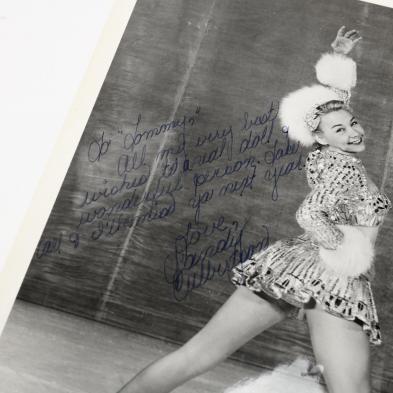 To "Tommy"
All my very best
wishes to a real doll &
wonderful person. Take
care & I'll
ya next year
Love,
Sandy
Culbertson